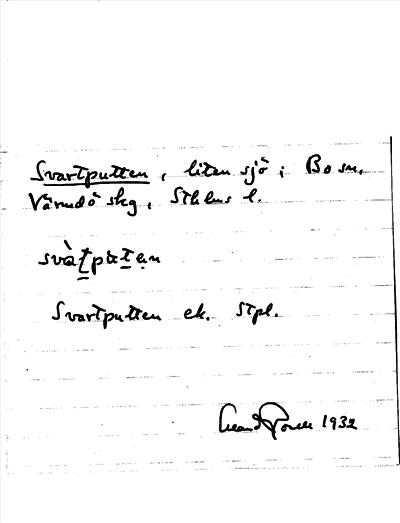 Svartputten, liten sjö i Bo sn,
Värmdö skg, Sthlms l.
svàt̠put̠ẹn
Svartputten ek. Stpl.
1932